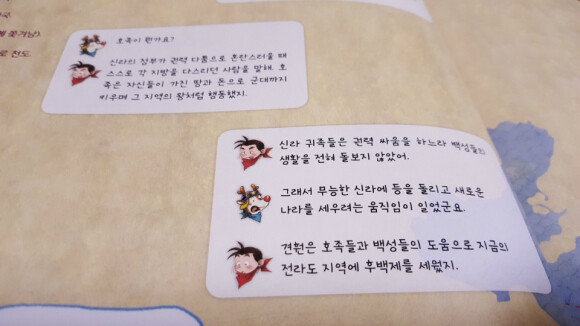 쫓겨남)
로 천도
호족이 뭔가요?
신라의 정부가 권력 다툼으로 혼란스러울 때
스스로 각 지방을 다스리던 사람을 말해. 호
족은 자신들이 가진 땅과 돈으로 군대까지
키우며 그 지역의 왕처럼 행동했지.
신라 귀족들은 권력 싸움을 하느라 백성들의
생활을 전혀 돌보지 않았어.
그래서 무능한 신라에 등을 돌리고 새로운
나라를 세우려는 움직임이 일었군요.
견훤은 호족들과 백성들의 도움으로 지금의
전라도 지역에 후백제를 세웠지.